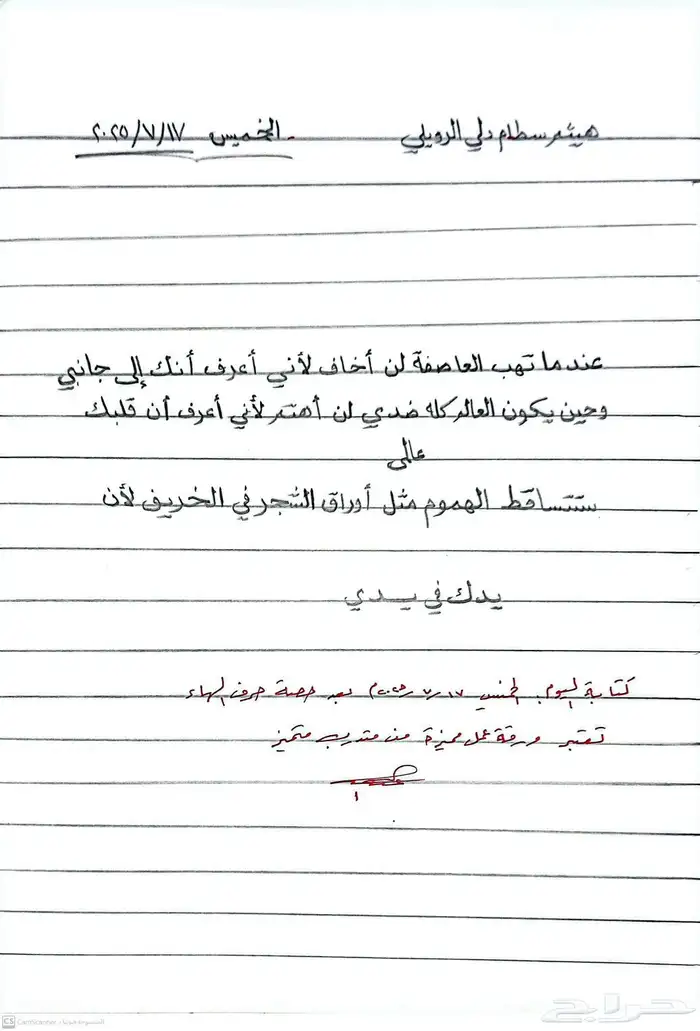 هيثم سطام دلي الرويلي - الخميس ٢٠٢٥/٧/١٧
عندما تهب العاصفة لن أخاف لأني أعرف أنك إلى جانبي
وحين يكون العالم كله ضدي لن أهتم لأني أعرف أن قلبك
عالمي
ستتساقط الهموم مثل أوراق الشجر في الخريف لأن
يدك في يدي
كتابة اليوم الخميس ١٧/٧/٢٠٢٥م بعد حصة حرف الهاء
تعتبر ورقة عمل مميزة من متدرب متميز
حراج
CS CamScanner الممسوحة ضوئيا بـ